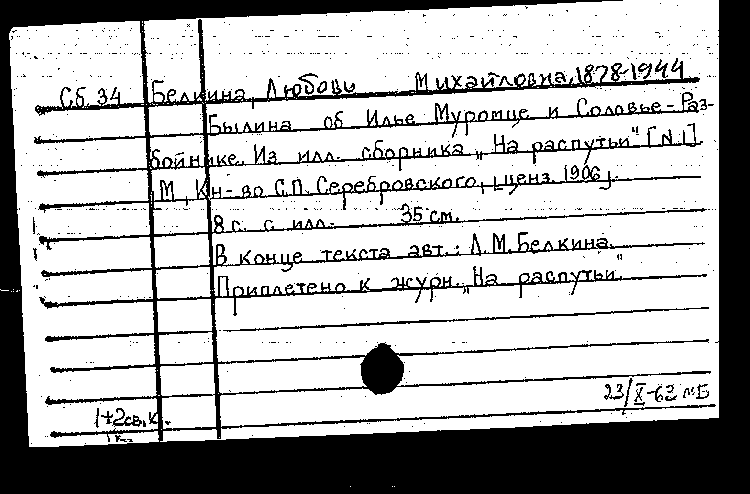 Сб. 34 Белкина, Любовь Михайловна, 1878-1944
Былина об Илье Муромце и Соловье-Раз-
бойнике. Из илл. сборника „На распутьи" [N.1]
М., Кн-во С.П. Серебровского, [ценз. 1906].
8 с. с илл. 35 см.
В конце текста авт.: Л.М. Белкина.
Приплетено к журн. „На распутьи"
23/X-63 МБ
1+2св.к.
1к.